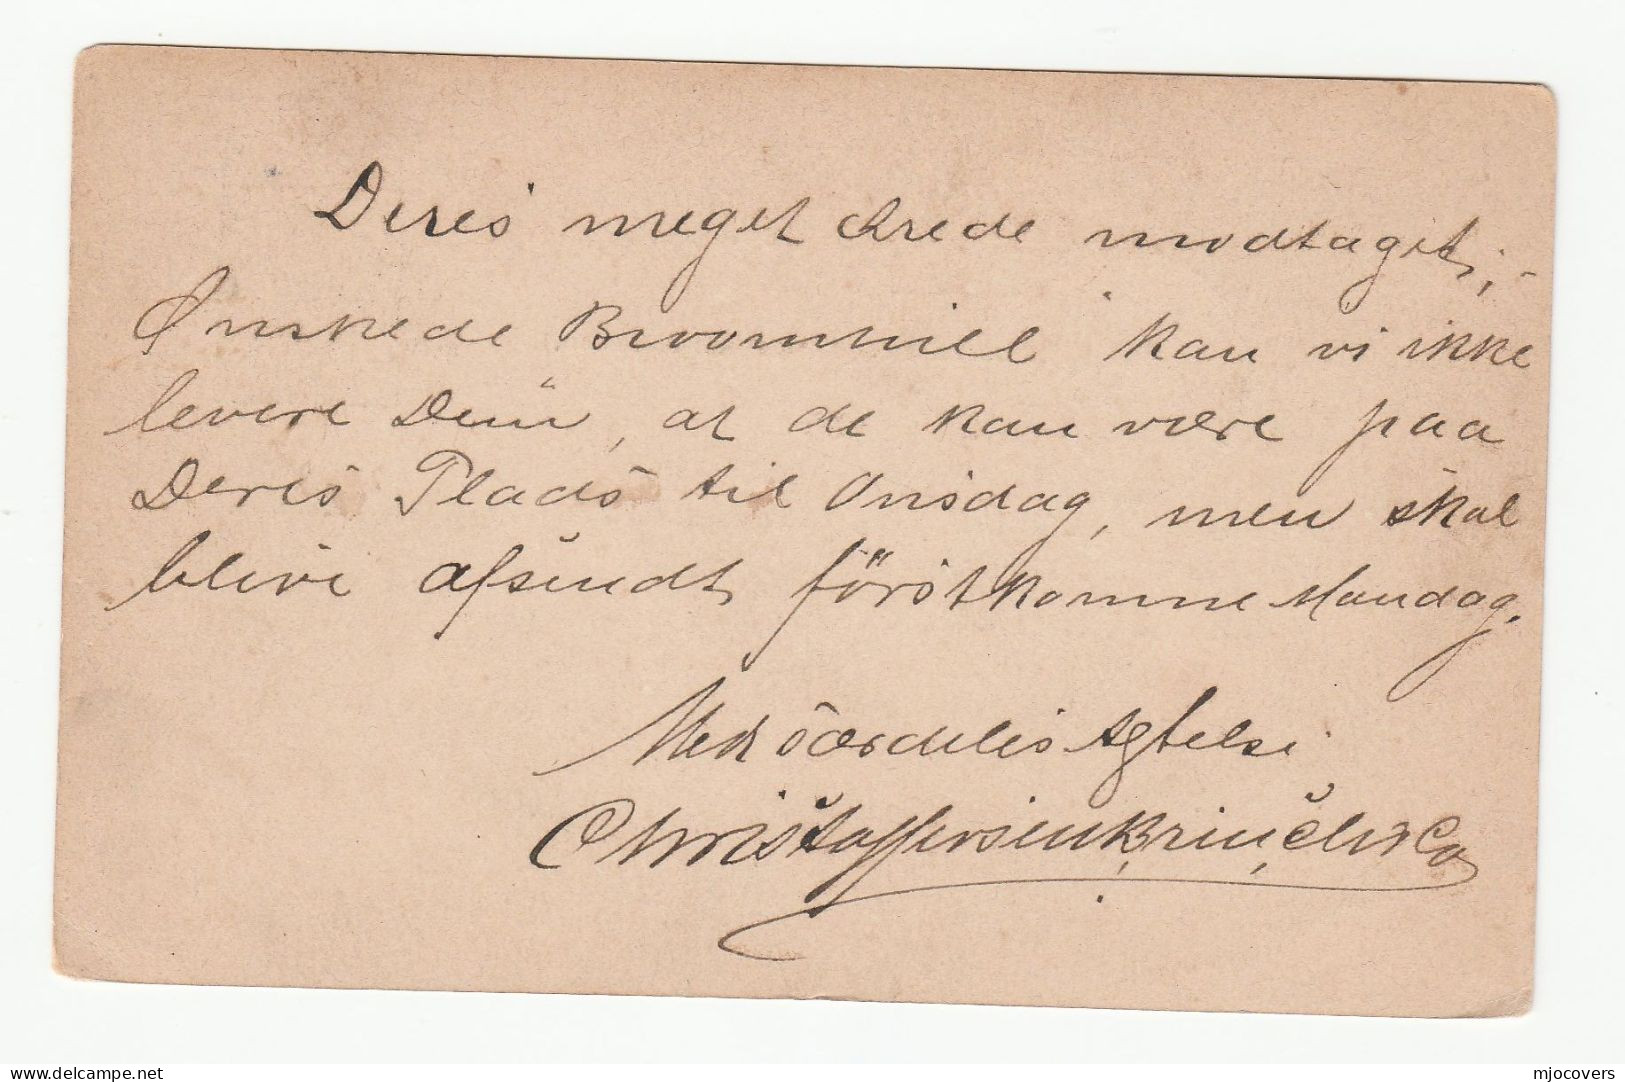 Deres meget ærede modtaget; -
Ønskede Broomhill kan vi ikke
levere Dem, at de kan være paa
Deres Plads til Onsdag, men skal
blive afsendt förstkomme Mandag.
Med særdeles Agtelse
Christoffersen & Co
delcampe.net
mjocovers